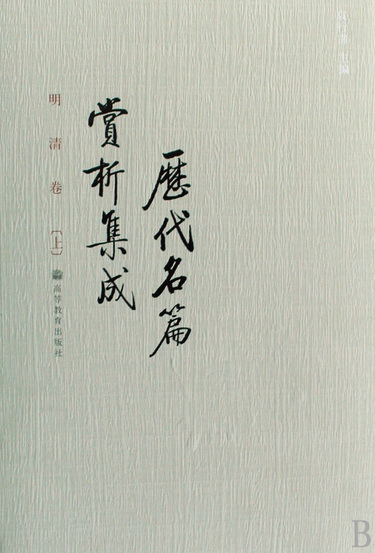 袁行霈 主编
歷代名篇
賞析集成
明清卷 [上]
高等教育出版社
B